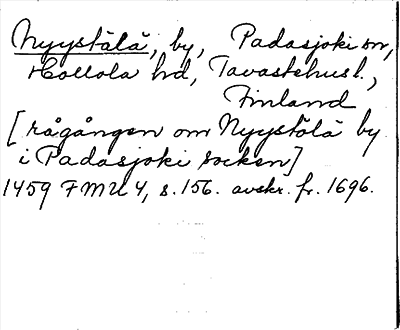 Nyystälä, by, Padasjoki sn,
Hollola hd, Tavastehusl.,
Finland
[rågången om Nyystälä by
i Padasjoki socken]
1459 FMU 4, s. 156. avskr. fr. 1696.